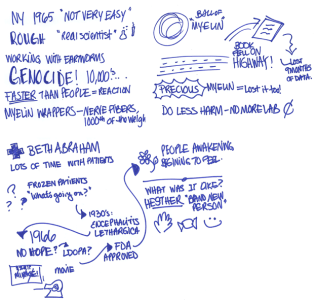 NY 1965 "NOT VERY EASY"
ROUGH "Real scientist"
WORKING WITH EARTHWORMS
GENOCIDE! 10,000s...
FASTER THAN PEOPLE = REACTION
MYELIN WRAPPERS - NERVE FIBERS,
1000th of the weigh
"MYELIN"
BOOK
FELL ON
HIGHWAY!
LOST
9 MONTHS
OF DATA.
PRECIOUS MYELIN = Lost it too!
DO LESS HARM - NO MORE LAB
BETH ABRAHAM
LOTS OF TIME WITH PATIENTS
? FROZEN PATIENTS
? ? "What's going on?"
1930s:
ENCEPHALITIS
LETHARGICA
1966
NO HOPE? LDOPA?
FDA
APPROVED
movie
PEOPLE AWAKENING
BEGINNING TO FEEL
WHAT WAS IT LIKE?
HESTHER "BRAND NEW
PERSON"